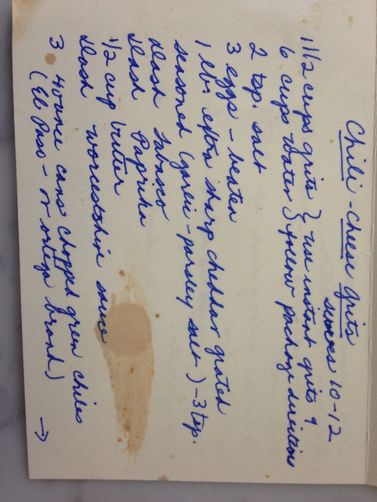 Chili-cheese Grits
serves 10-12
1 1/2 cups grits } use instant grits &
6 cups water } follow package directions
2 tsp. salt
3 eggs - beaten
1 lb. extra sharp cheddar grated
seasoned (garlic-parsley salt) - 3 tsp.
dash Tabasco
dash Paprika
1/2 cup butter
dash worcestshire sauce
3 4 ounce cans chopped green chiles
(El Paso - or ortega brand)
→